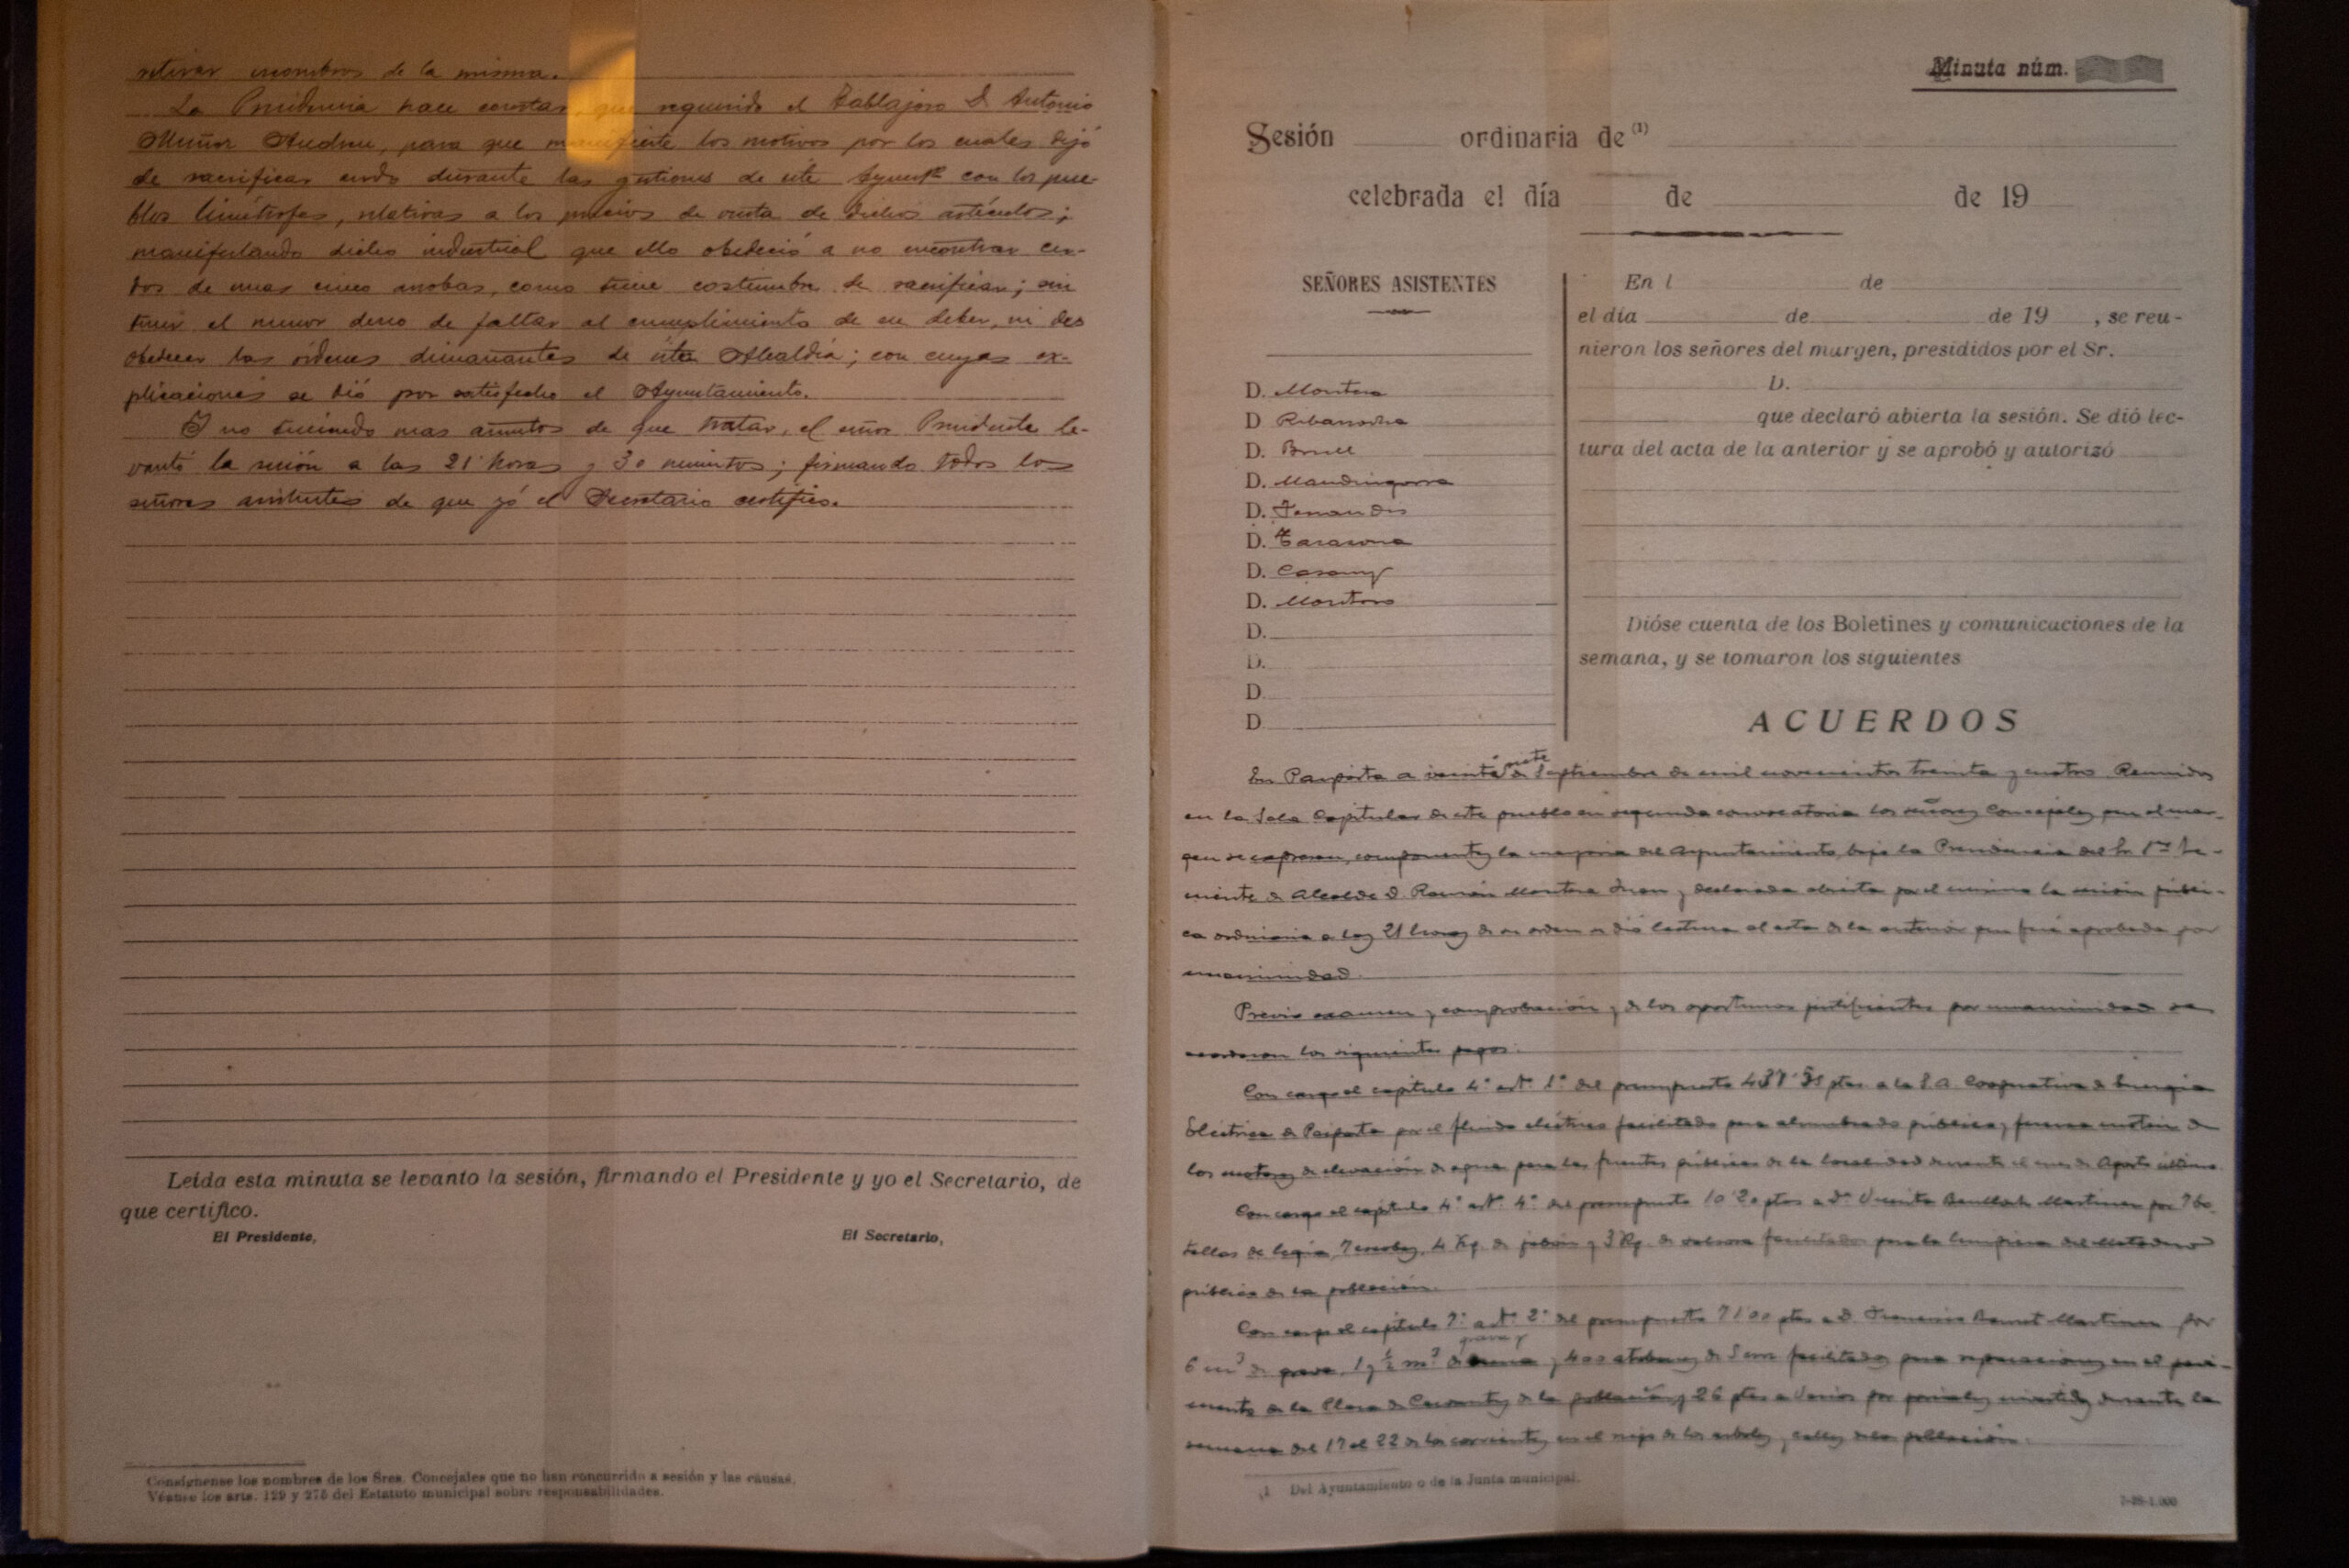 retirar escombros de la misma.
La Presidencia hace constar, que requerido el Tablajero D. Antonio
Muñoz Andreu, para que manifieste los motivos por los cuales dejó
de sacrificar cerdo durante las gestiones de este Ayuntº con los pue-
blos limítrofes, relativas a los precios de venta de dichos artículos;
manifestando dicho industrial que ello obedeció a no encontrar cer-
dos de unas cinco arrobas, como tiene costumbre de sacrificar; sin
tener el menor deseo de faltar al cumplimiento de su deber, ni des
obedecer las órdenes dimanantes de esta Alcaldía; con cuyas ex-
plicaciones se dió por satisfecho el Ayuntamiento.
Y no teniendo mas asuntos de que tratar, el señor Presidente le-
vantó la sesión a las 21 horas y 30 minutos; firmando todos los
señores asistentes de que yó el Secretario certifico.
Leída esta minuta se levanto la sesión, firmando el Presidente y yo el Secretario, de
que certifico.
El Presidente,
El Secretario,
Consígnense los nombres de los Sres. Concejales que no han concurrido a sesión y las causas.
Véanse los arts. 129 y 275 del Estatuto municipal sobre responsabilidades.
Minuta núm.
Sesión ordinaria de (1)
celebrada el día de de 19
SEÑORES ASISTENTES
D. Montera
D
D.
D. Mandingorra
D. Fernandis
D. Tarazona
D. Casany
D. Montoro
D.
D.
D
D
En l de
el día de de 19 , se reu-
nieron los señores del margen, presididos por el Sr.
D.
que declaró abierta la sesión. Se dió lec-
tura del acta de la anterior y se aprobó y autorizó
Dióse cuenta de los Boletines y comunicaciones de la
semana, y se tomaron los siguientes
ACUERDOS
En Paiporta a veintisiete de Septiembre de mil novecientos treinta y cuatro. Reunidos
en la Sala Capitular de este pueblo en segunda convocatoria los señores Concejales que al mar-
gen se expresan, componentes la mayoria del Ayuntamiento, bajo la Presidencia del Sr. 1er Te-
niente de Alcalde D. Ramón Montera Juan y declarada abierta por el mismo la sesión públi-
ca ordinaria a las 21 horas de su orden se dió lectura al acta de la anterior que fué aprobada por
unanimidad.
Previo examen y comprobación y de los oportunos justificantes por unanimidad se
acordaron los siguientes pagos:
Con cargo al capitulo 4º artº 1º del presupuesto ptas a la S.A. Cooperativa de Energia
Eléctrica de Paiporta por el fluido eléctrico facilitado para alumbrado público y fuerza motriz de
los motores de elevación de agua para las fuentes públicas de la localidad durante el mes de Agosto último.
Con cargo al capitulo 4º artº 4º del presupuesto 10'20 ptas a Dª Vicenta Martinez por 7 bo-
tellas de legia, 7 escobas, 4 Kg. de jabón y 3 Kg. de facilitados para la limpieza del Matadero
público de la población.
Con cargo al capitulo 7º artº 2º del presupuesto 71'00 ptas a D. Francisco Martinez por
6 m³ de grava, 1 y ½ m³ de grava y y 400 de facilitados para reparaciones en el pavi-
mento de la Plaza de Cervantes de la población y 26 ptas a Varios por jornales invertidos durante la
semana del 17 al 22 de los corrientes en el riego de los arboles y calles de la población.
(1 Del Ayuntamiento o de la Junta municipal.